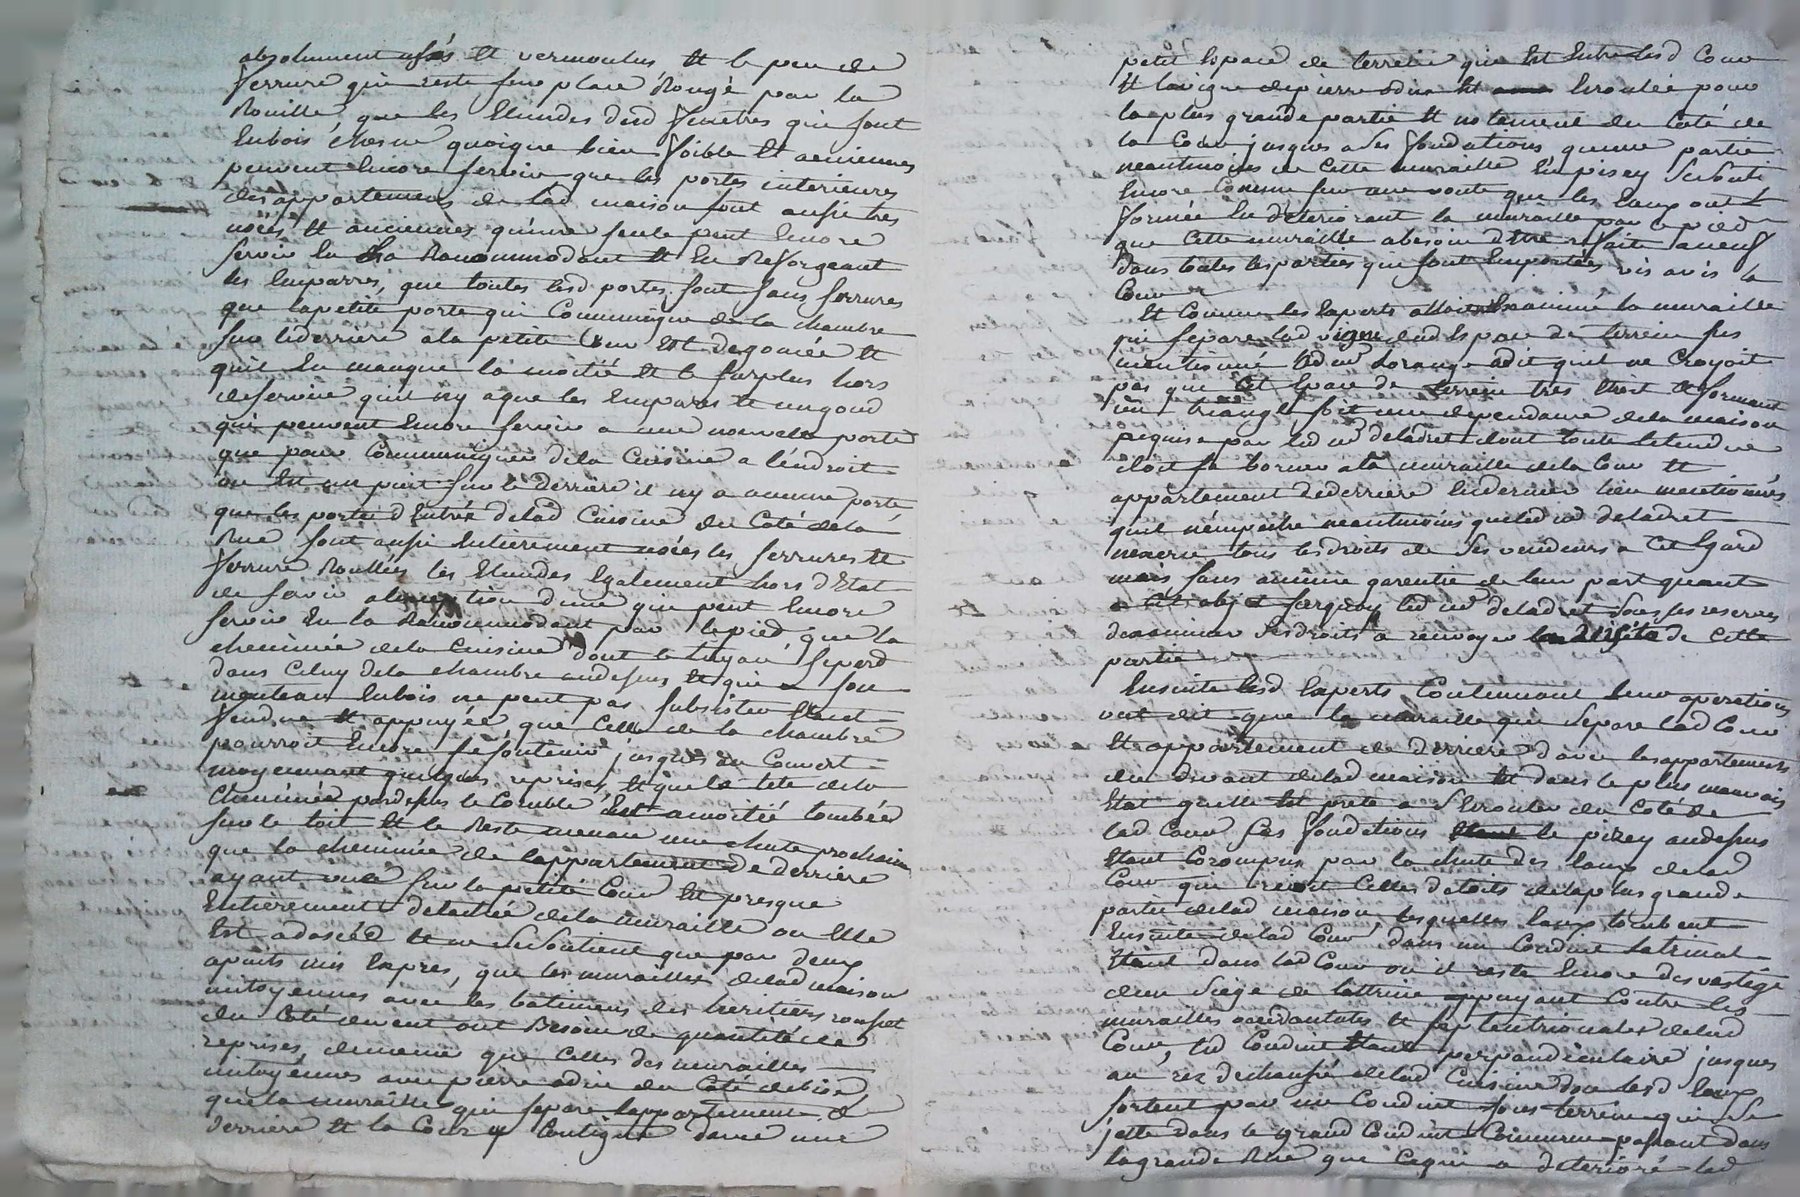 absolument usés et vermoulus et le peu de
ferrure qui reste sur place Rongé par la
Rouille, que les Etendes desd fenetres qui sont
En bois chesne quoique bien foible et anciennes
peuvent Encore servir que les portes interieures
des appartemens de lad maison sont aussi tres
usées et anciennes qu'une seule peut Encore
servir En la Racommodant et En Reforgeant
les Emparres, que toutes lesd portes sont sans serrures
que la petite porte qui Communique de la chambre
sur le derriere a la petite Cour Est degoncée et
quil En manque la moctié et le surplus hors
de service quil ny a que les Empares et un gond
qui peuvent Encore servir a une nouvelle porte
que pour Communiquer de la Cuisine a l'endroit
ou Est un puit sur le derriere il ny a aucune porte
que les porte d'Entrée de lad Cuisine du Coté de la
Rue sont aussi Entierement usées les serrures et
ferrure Rouillées les Etendes Egalement hors d'Etat
de servir a lexception d'une qui peut Encore
servir En la Racommodant par le pied que la
cheminée de la Cuisine dont le tuyau se perd
dans Celuy de la chambre au dessus et qui a son
menteau En bois ne peut pas subsister Etant
fendue et appuyée que Celle de la chambre
pourroit Encore se soutenir jusques au Couvert
moyennant quelques reprises, et que la tete de la
Cheminée par dessus le Comble Est a moitié tombée
sur le toit et le Reste menace une chute prochaine
que la cheminée de l'appartement de derriere
ayant sur la petite Cour Est presque
Entierement detachée de la muraille ou Elle
Est adossée et ne se soutient que par deux
apuits mis Exprés, que les murailles de lad maison
mitoyennes avec les batimens des heritiers
du Coté devent ont Besoin de quantité de
reprises, de meme que Celles des murailles
mitoyennes avec pierre odin du Coté de bise
que la muraille qui separe l'appartement de
derriere et la Cour y Contigue d'avec une
petit Espace de terrein qui Est Entre lesd Cour
Et la vigne de pierre odin Est Ecroulée pour
la plus grande partie et notament du Coté de
la Cour jusques a Ses fondations qu'une partie
neantmoins de Cette muraille En pisey se soutient
Encore Comme sur une voute que les Eaux ont
formée En deteriorant la muraille par le pied
que Cette muraille a besoin d'Etre refaite a neuf
dans toutes les parties qui sont Emportées vis avis la
Cour
Et Comme les Experts alloient Examiné la muraille
qui separe lad vigne dud Espace de terrein sus
mentionné led mr Lorange a dit quil ne Croyoit
pas que Cet Espace de terrein tres Etroit et formant
un triangle soit une dependance de la maison
acquise par led mr deladret dont toute letendue
doit se borner a la muraille de la Cour et
appartement de derriere En dernier lieu mentionnés
quil n'empeche neantmoins que led mr deladret
n'exerce tous les droits de Ses vendeurs a Cet Egard
mais sans aucune garentie de leur part quant
a Cet objet surquoy led mr deladret sous les reserves
dexaminer Ses droits a renvoyer la visite de Cette
partie
Ensuite lesd Experts Continuant leur operations
ont dit que la muraille qui Separe lad Cour
Et appartement de derriere d'avec les appartements
du devant de lad maison Est dans le plus mauvais
Etat quelle Est prete a S'Ecrouler du Coté de
lad Cour Ses fondations le pizey au dessus
Etant Corompus par la chute des Eaux de lad
Cour qui recoit Celles des toits de la plus grande
partie de lad maison, lesquelles Eaux tombent
Ensuite de lad Cour dans un Conduit latrinal
Etant dans lad Cour ou il reste Encore des vestige
d'un Siege de lattrine appuyant Contre les
murailles occidantales et septentrionales de lad
Cour, led Conduit Etant perpandiculaire jusques
au rez de chaussé de lad Cuisine d'ou lesd Eaux
sortent par un Conduit sous terrein qui Se
jette dans le grand Conduit Commun passant dans
la grande Rue que Ce qui a deterioré lad